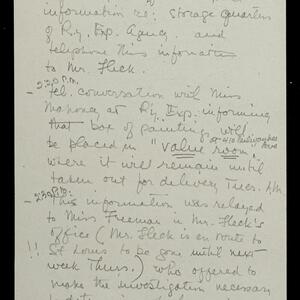 information re: storage quarters
of Ry. Exp. Agency and
telephone this information
to Mr. Fleck.
2:20 P.M.
Tel. conversation with Miss
Mahoney at Ry. Exp. informing
that box of paintings will
be placed in "value room,"
where it will remain until
taken out for delivery Tues. A.M.
- 2:30 P.M:
This information was relayed
to Miss Freeman in Mr. Fleck's
office (Mr. Fleck is en route to
!! St Louis to be gone until next
week Thurs.) who offered to
make the investigation necessary